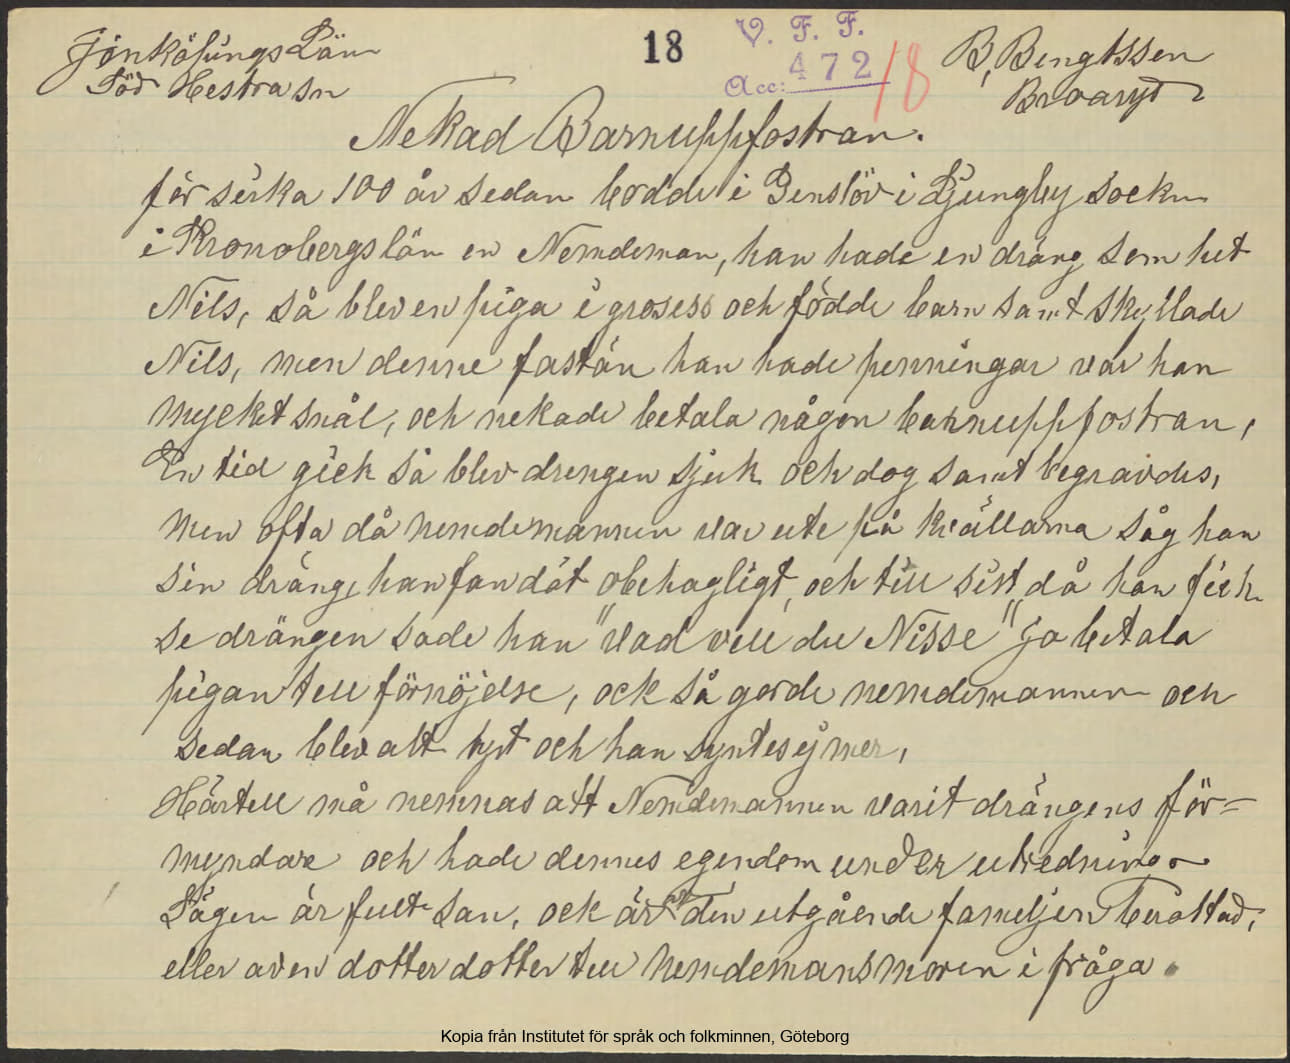 Jönköpings Län
18
V. F. F.
Acc: 472
18
B, Bengtssen
Söd Hestra sn
Broaryd
Nekad Barnuppfostran.
för sirka 100 år sedan bodde i Genslöv i Ljungby sockn
i Kronobergs län en Nemdeman, han hade en dräng som het
Nils, så blev en piga i grosess och födde barn samt skyllade
Nils, men denne fastän han hade penningar var han
mycket snål, och nekade betala någon barnuppfostran,
En tid gick så blev drengen sjuk och dog samt begravdes,
men ofta då nemdemannen var ute på kvällarna såg han
sin dräng, han fan dät obehagligt, och till sist då han fick
se drängen sade han "vad vill du Nisse" jo betala
pigan till förnöjelse, ock så gorde nemdemannen och
sedan blev alt tyst och han syntes ej mer,
Härtill må nemnas att Nemdemannen varit drängens för=
myndare och hade dennes egendom under utredning
Sägen är fullt san, ock är af den utgående familjen berättad,
eller av en dotter dotter till nemdemansmoren i fråga.
Kopia från Institutet för språk och folkminnen, Göteborg